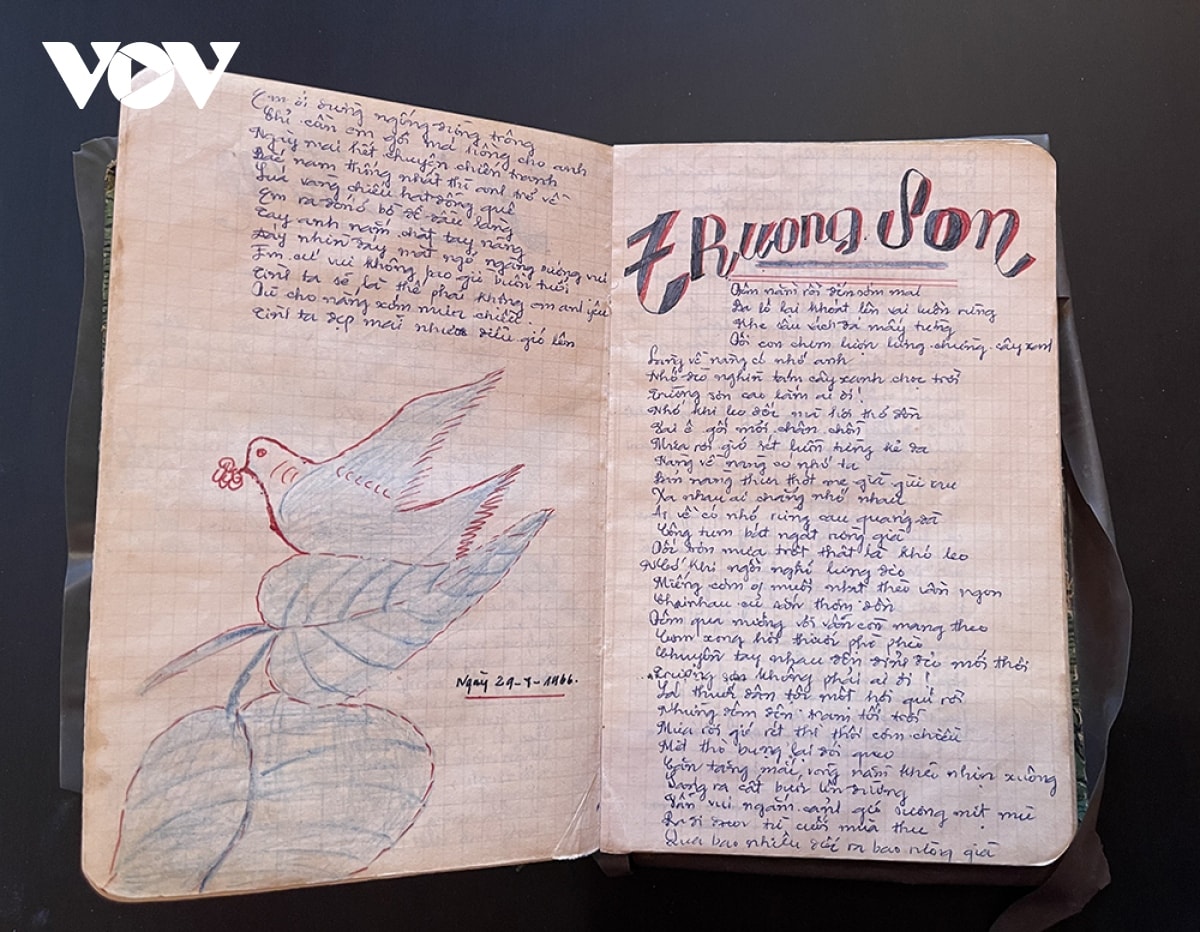 VOV
Em ơi đừng ngóng đừng trông
Chỉ cần em gởi má hồng cho anh
Ngày mai hết chuyện chiến tranh
Bắc nam thống nhất thì anh trở về
Lúa vàng chiều hạt đồng quê
Em ra đón ở bờ đê đầu làng
Tay anh nắm chặt tay nàng
Đáy nhìn đáy mắt ngỡ ngàng sướng vui
Em cứ vui không bao giờ buồn tuổi
Tình ta sẽ là thế phải không em anh yêu
Dù cho nắng xớm mưa chiều.
Tình ta đẹp mãi như diều gió lên
Ngày 29-8-1966.
TRương Sơn
Đêm nằm rồi đến sớm mai
Ba lô lại khoát lên vai luồn rừng
Khe sâu vách đá mấy từng
Đôi con chim lượn lưng chừng cây xanh
Nàng về nàng có nhớ anh
Nhớ đèo nghìn tám cây xanh chọc trời
Trường sơn cao lắm ai ơi!
Nhớ khi leo dốc mồ hôi thở dồn
Vai ê gối mỏi chân chồn
Mưa rơi gió rét luồn từng kẻ da
Nàng về nàng có nhớ ta
Xa nhau ai chẳng nhớ nhau
Ai về có nhớ rừng cau
Công tum bát ngát rừng già
Dốc trơn mưa trợt thật là khó leo
Nhớ khi ngồi nghỉ lưng đèo
Miếng cơm muối nhạt thèo ngon
Đêm qua nương vôi vẫn còn mang theo
Cơm xong hơi thuốc phì phèo
Chuyền tay nhau đến đỉnh đèo mới thôi
Trường sơn không phải ai ơi!
Lá thuốc dân tộc một hơi quí rồi
Những đêm đến trạm tối trời
Mưa rơi gió rét thì thôi cơm chiều
Mệt tho bụng lại đói queo
Căn tăng mắc võng nằm khèo nhịn xuông
Sáng ra cất bước lên đường
Vẫn vui ngắm cảnh gió sương mịt mù
Ra đi từ cuối mùa thu
Qua bao nhiêu dốc ra bao rừng già